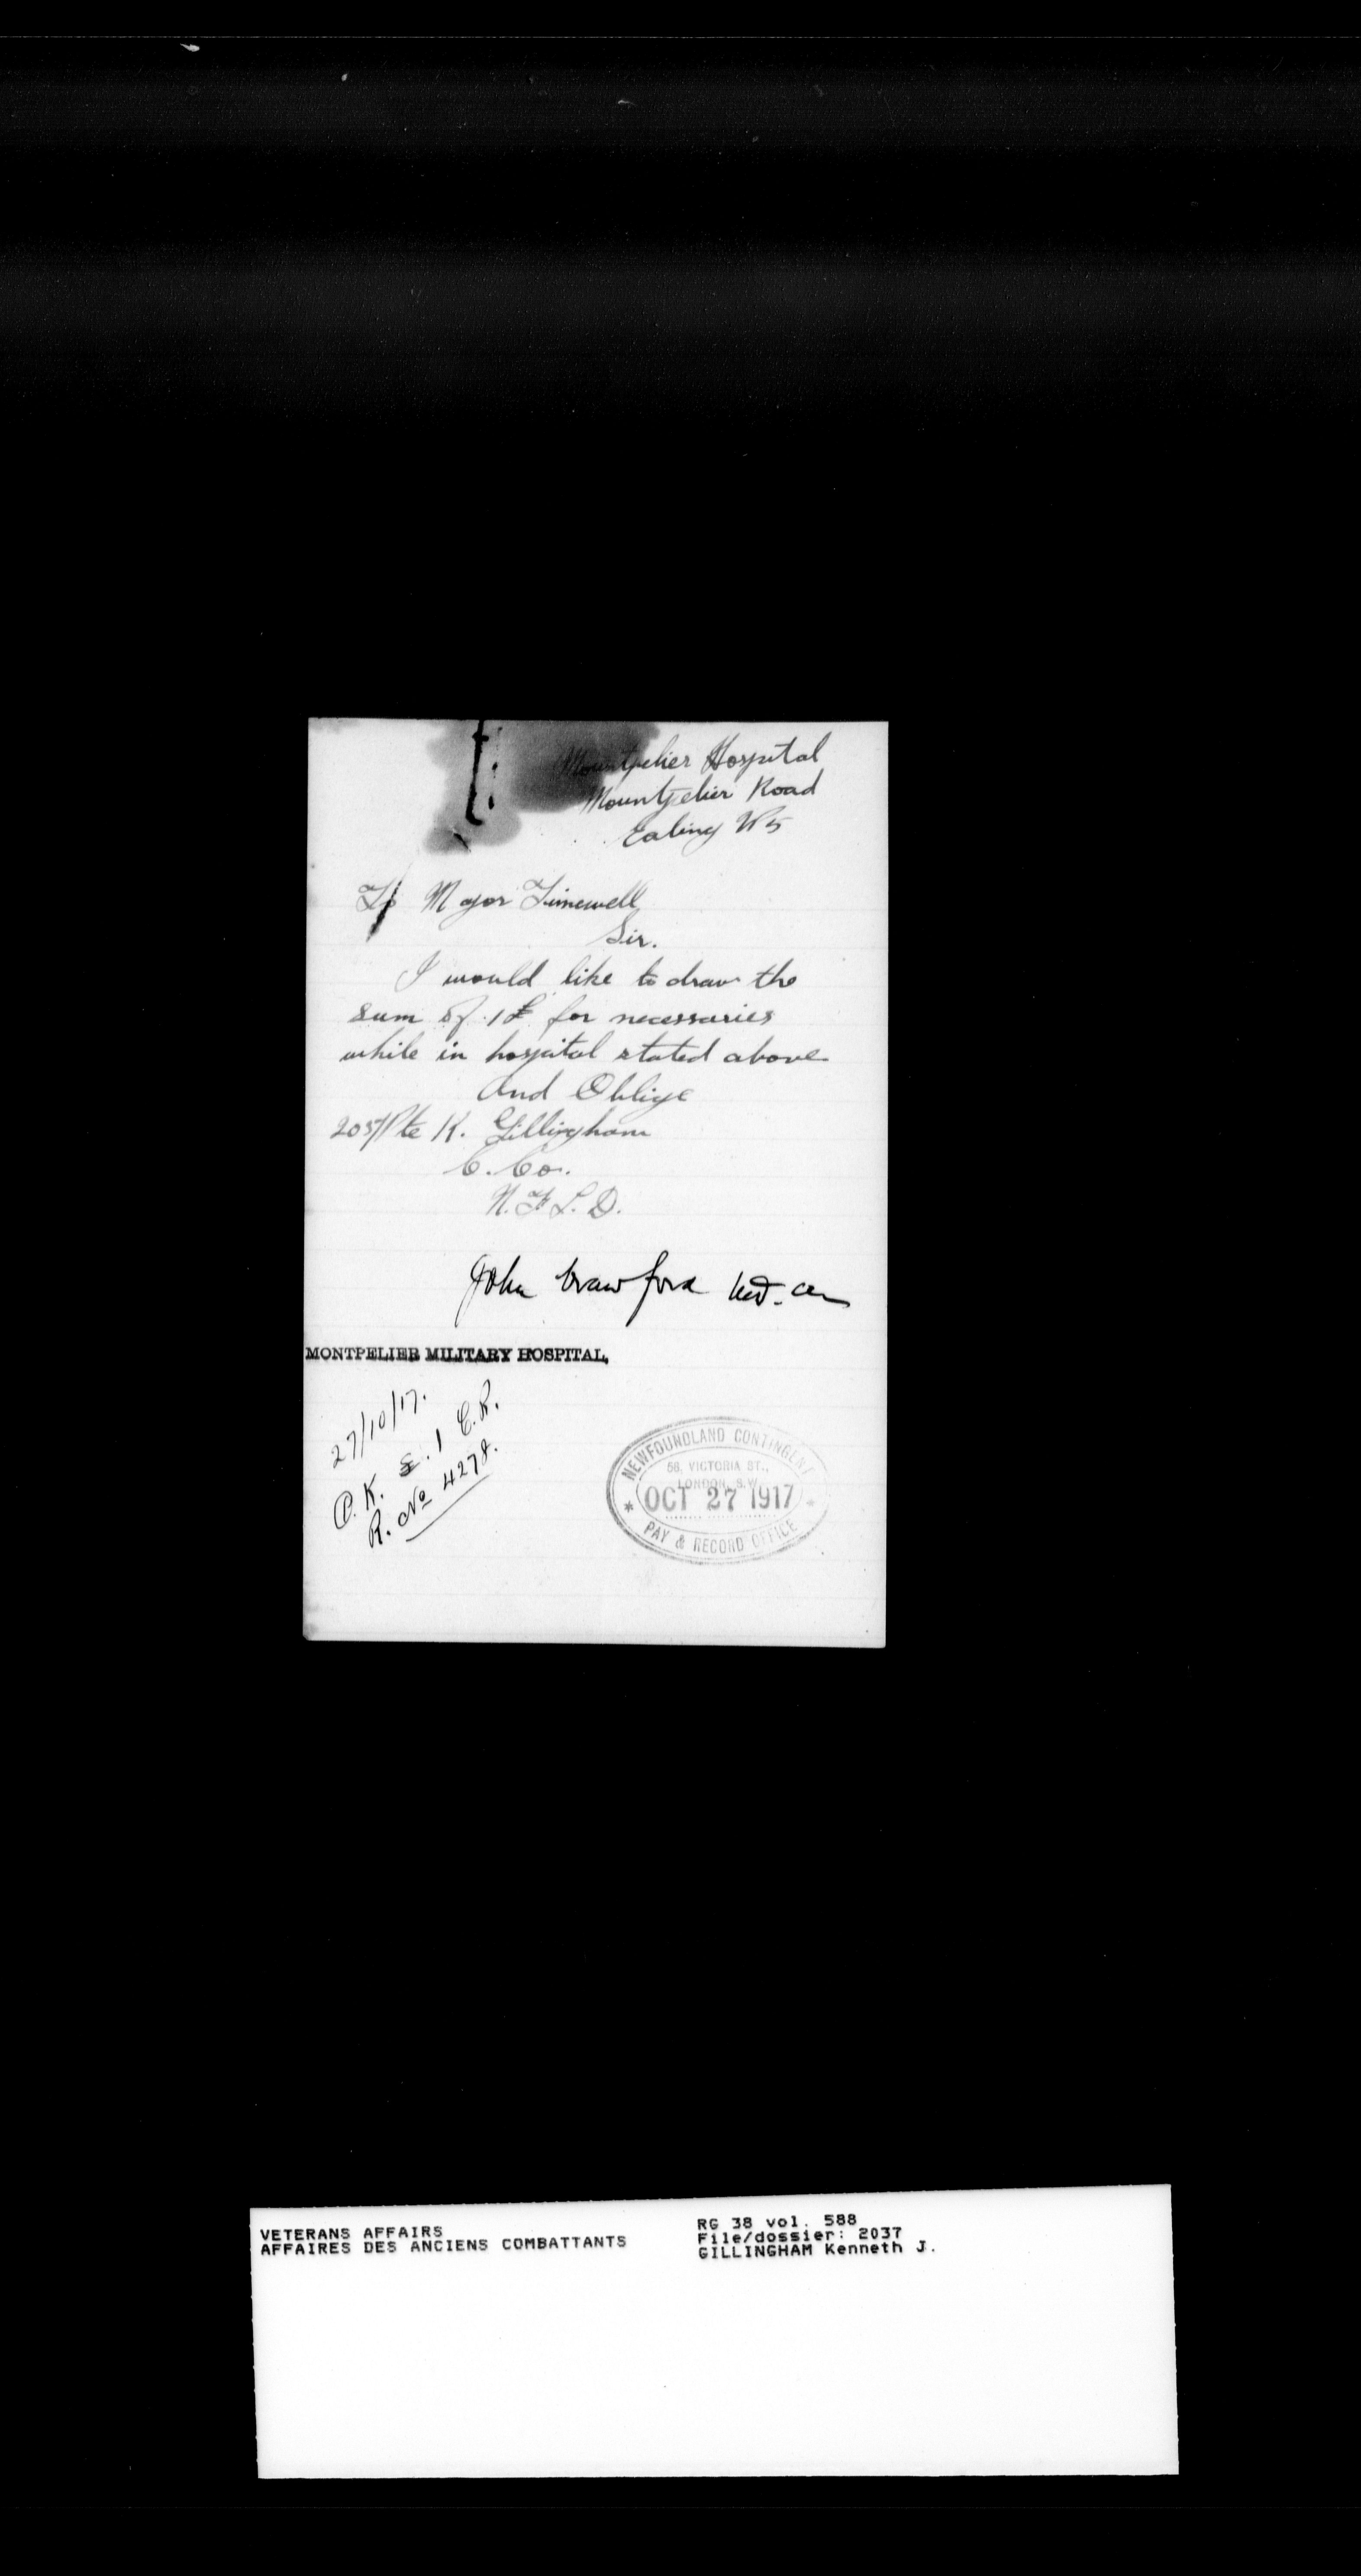 Mountpelier Hospital
Mountpelier Road
Ealing W5
To Major Timewell
Sir.
I would like to draw the
sum of 1£ for necessaries
while in hospital stated above
And Oblige
Pte K. Gillingham
C. Co.
N.F.L.D.
John Crawford
MONTPELIER MILITARY HOSPITAL,
27/10/17.
O.K. £.1 C.R.
R. No 4278.
NEWFOUNDLAND CONTINGENT
58, VICTORIA ST.,
LONDON, S.W.
OCT 27 1917
PAY & RECORD OFFICE
VETERANS AFFAIRS
AFFAIRES DES ANCIENS COMBATTANTS
RG 38 vol. 588
File/dossier: 2037
GILLINGHAM Kenneth J.